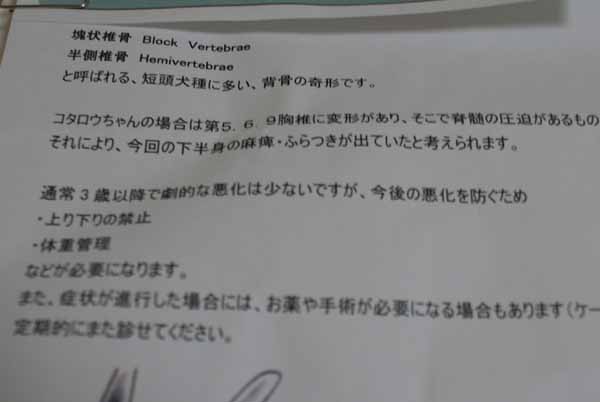 塊状椎骨 Block Vertebrae
半側椎骨 Hemivertebrae
と呼ばれる、短頭犬種に多い、背骨の奇形です。
コタロウちゃんの場合は第5．6．9胸椎に変形があり、そこで脊髄の圧迫があるもの
それにより、今回の下半身の麻痺・ふらつきが出ていたと考えられます。
通常3歳以降で劇的な悪化は少ないですが、今後の悪化を防ぐため
・上り下りの禁止
・体重管理
などが必要になります。
また、症状が進行した場合には、お薬や手術が必要になる場合もあります（ケー
定期的にまた診せてください。